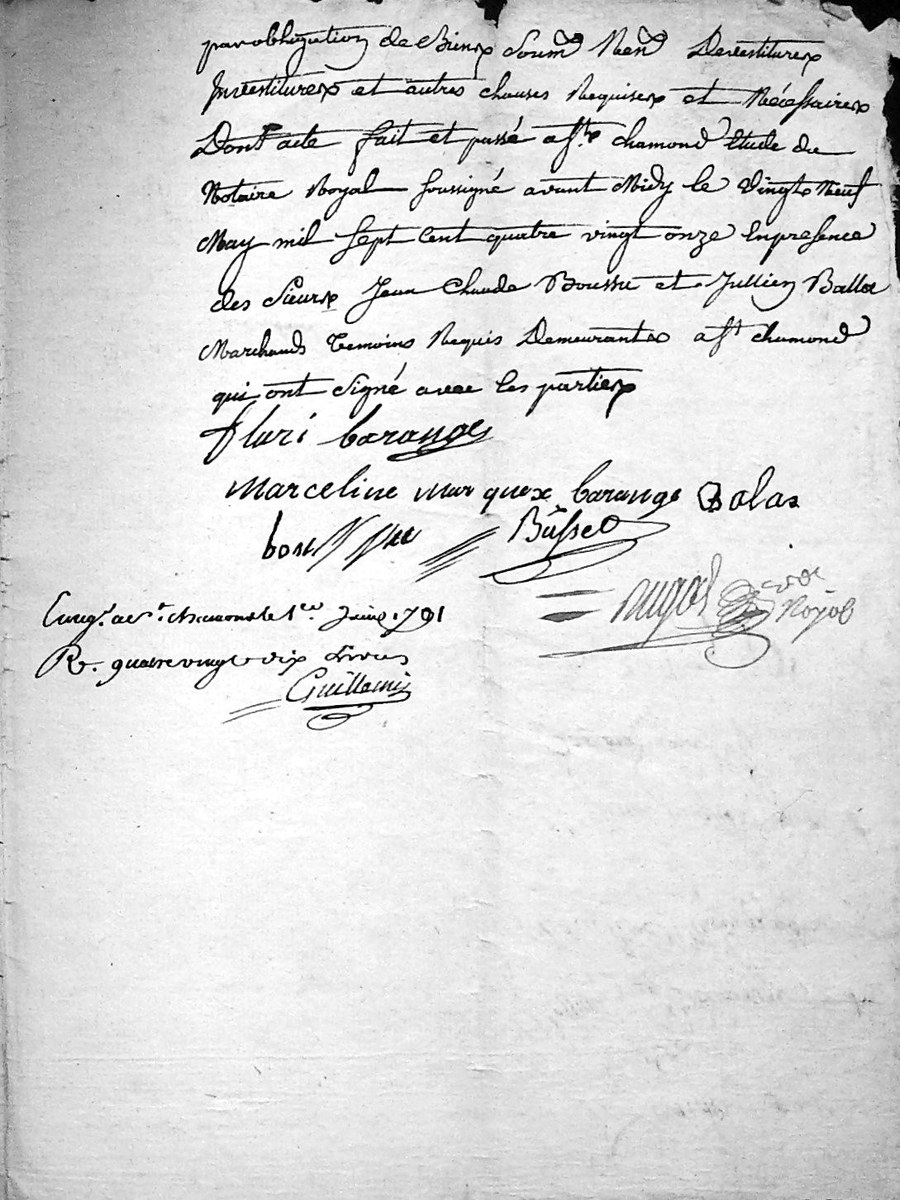 par obligation de Biens Soum.^on Ren.^on Devestitures
Investitures et autres clauses Requises et Nécessaires
Dont acte fait et passé a S.^t chamond Etude du
Notaire Royal soussigné avant Midy le Vingt Neuf
May mil Sept Cent quatre vingt onze En presence
des Sieurs Jean Claude Boussu et Jullien Ballas
Marchands Temoins Requis Demeurants a S.^t chamond
qui ont Signé avec les parties
fluri barange
Marceline marquex barange Balas
Bussed
Royal
Enrg.^é a S.^t chamond le 1.^er Juin 1791
R. quatre vingt dix Livres
Guillemin